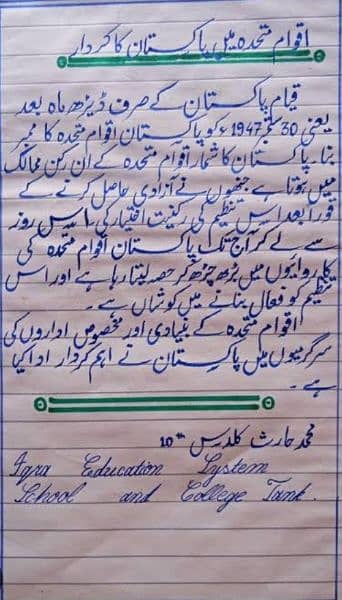 اقوام متحدہ میں پاکستان کا کردار
قیام پاکستان کے صرف ڈیڑھ ماہ بعد
یعنی 30 ستمبر 1947ء کو پاکستان اقوام متحدہ کا ممبر
بنا۔ پاکستان کا شمار اقوام متحدہ کے ان رکن ممالک
میں ہوتا ہے جنھوں نے آزادی حاصل کرنے کے
فورا بعد اس تنظیم کی رکنیت اختیار کی۔ اس روز
سے لے کر آج تک پاکستان اقوام متحدہ کی
کاروائیوں میں بڑھ چڑھ کر حصہ لیتا رہا ہے اور اس
تنظیم کو فعال بنانے میں کوشاں ہے۔
اقوام متحدہ کے بنیادی اور مخصوص اداروں کی
سرگرمیوں میں پاکستان نے اہم کردار ادا کیا
ہے۔
محمد حارث کلاس 10th
Iqra Education System
School and College Tank.